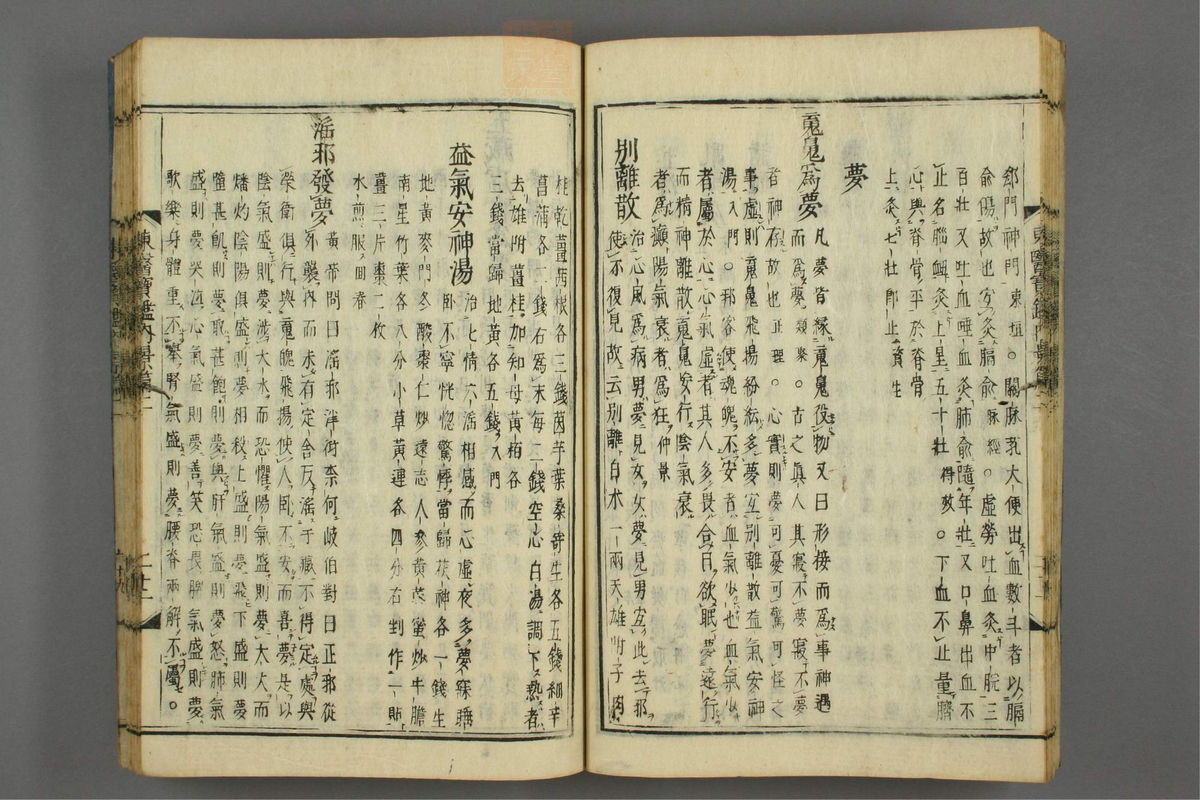 郄門神門東垣○關脉芤大便出血數斗者以膈
俞傷故也宜灸膈俞脉經○虛勞吐血灸中脘三
百壯又吐血唾血灸肺俞隨年壯又口鼻出血不
止名腦衄灸上星五十壯得效○下血不止量臍
心與脊骨平於脊骨
上灸七壯即止資生
夢
䰟魄爲夢凡夢皆緣䰟魄役物又曰形接而爲事神遇
而爲夢類聚○古之眞人其寢不夢寢不夢
者神存故也正理○心實則夢可憂可驚可怪之
事虛則䰟魄飛揚紛紜多夢宜別離散益氣安神
湯入門○邪客使魂魄不安者血氣少也血氣少
者屬於心心氣虛者其人多畏合目欲眠夢遠行
而精神離散䰟魄妄行陰氣衰
者爲癲陽氣衰者爲狂仲景
別離散治心風爲病男夢見女女夢見男宜此去邪
使不復見故云別離白朮一兩天雄附子肉
桂乾薑茜根各三錢茵芋葉桑寄生各五錢細辛
菖蒲各二錢右爲末每二錢空心白湯調下熱者
去雄附薑桂加知母黃栢各
三錢當歸地黃各五錢入門
益氣安神湯治七情六淫相感而心虛夜多夢寐睡
卧不寧恍惚驚悸當歸茯神各一錢生
地黃麥門冬酸棗仁炒遠志人參黃芪蜜炒牛膽
南星竹葉各八分小草黃連各四分右剉作一貼
薑三片棗二枚
水煎服回春
淫邪發夢黃帝問曰淫邪泮衍奈何岐伯對曰正邪從
外襲內而未有定舍反淫于藏不得定處與
榮衛俱行與䰟魄飛揚使人卧不安而喜夢是以
陰氣盛則夢涉大水而恐懼陽氣盛則夢大火而
燔灼陰陽俱盛則夢相殺上盛則夢飛下盛則夢
墮甚飢則夢取甚飽則夢與肝氣盛則夢怒肺氣
盛則夢哭泣心氣盛則夢善笑恐畏脾氣盛則夢
歌樂身體重不擧腎氣盛則夢腰脊兩解不屬○
東醫寶鑑內景篇二